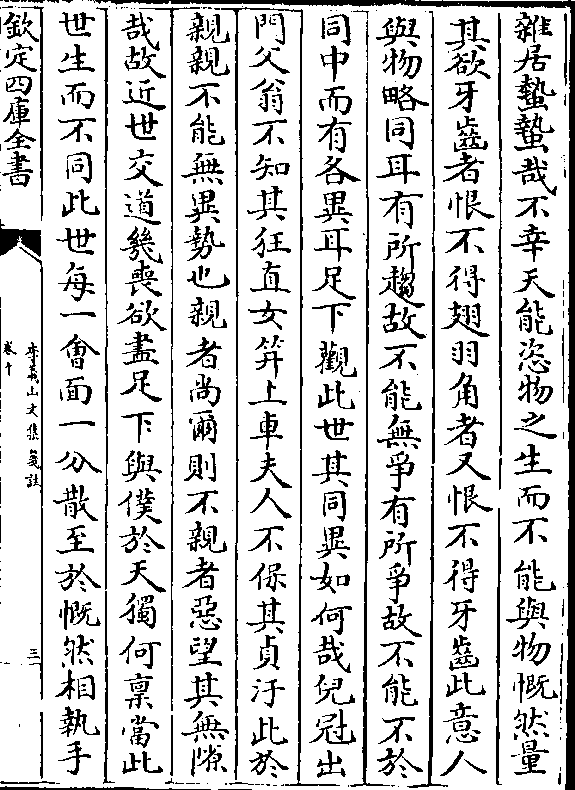 雜居蟄蟄哉不幸天能恣物之生而不能與物慨然量
其欲牙齒者恨不得翅羽角者又恨不得牙齒此意人
與物略同耳有所趨故不能無爭有所爭故不能不於
同中而有各異耳足下觀此世其同異如何哉兒冠出
門父翁不知其狂直女筓上車夫人不保其貞汙此於
親親不能無異勢也親者尚爾則不親者惡望其無隙
哉故近世交道幾喪欲盡足下與僕於天獨何稟當此
世生而不同此世每一會面一分散至於慨然相執手
欽定四庫全書
李義山文集箋註
卷十
三